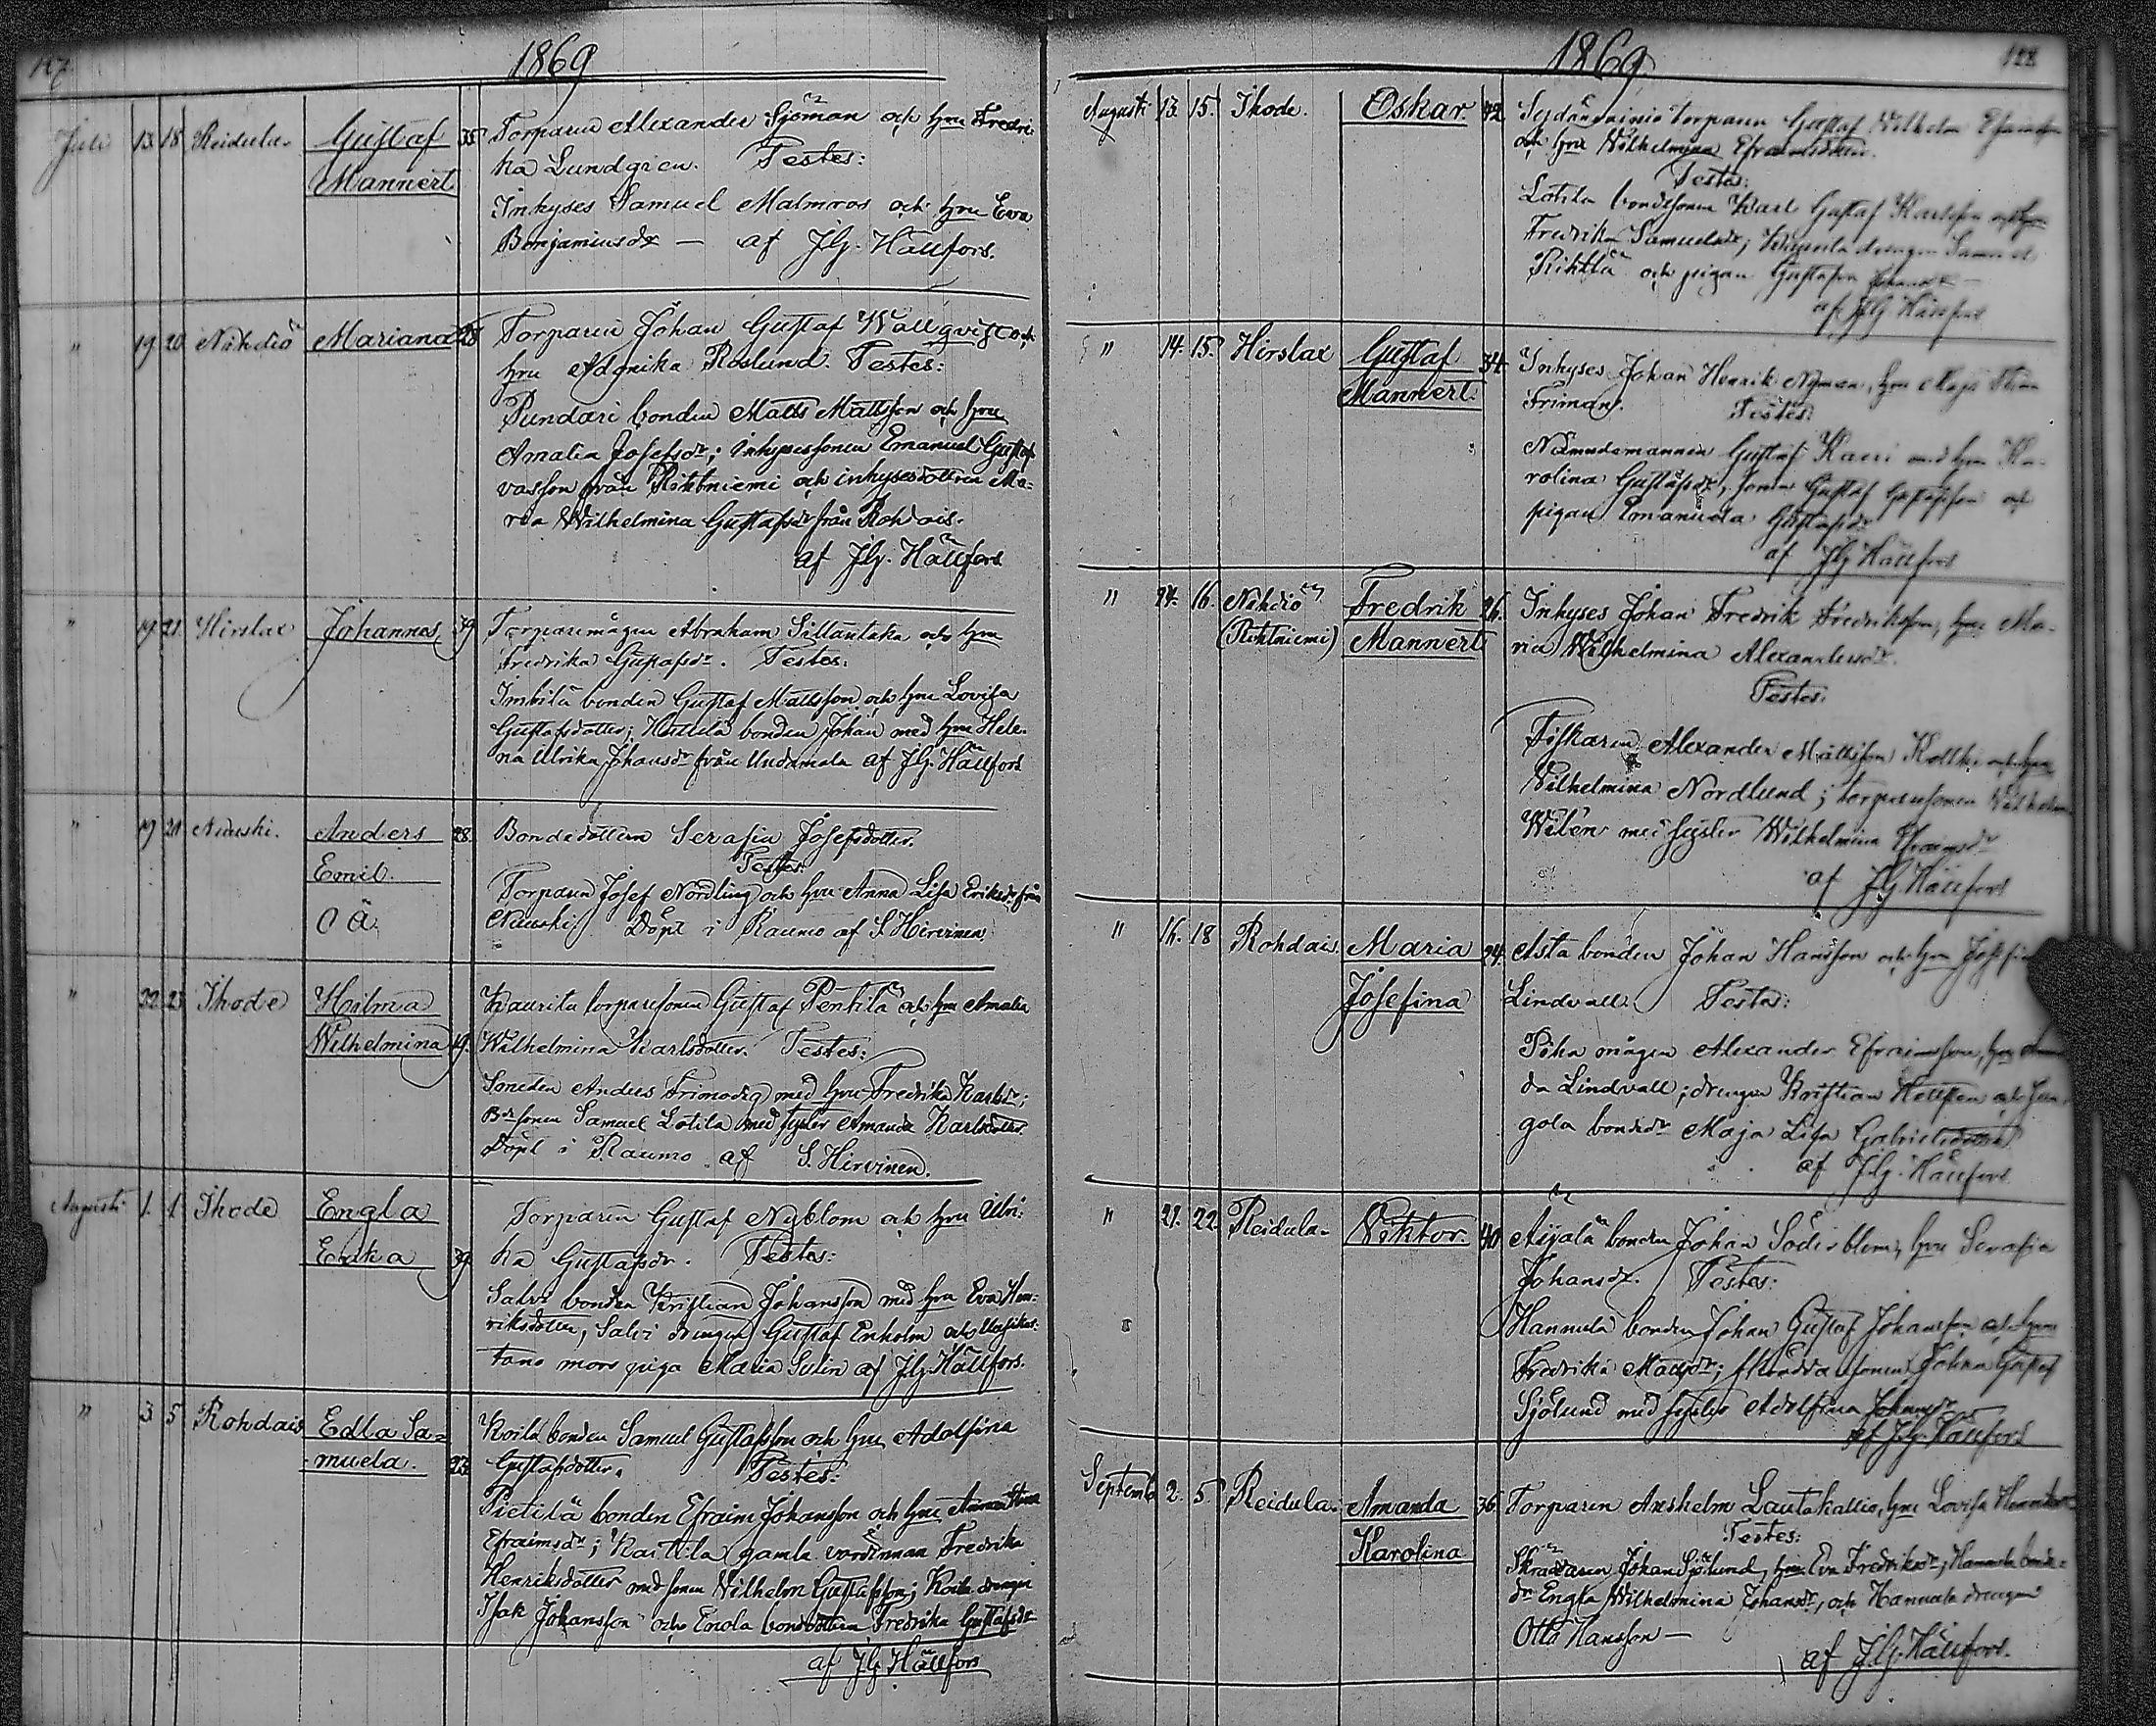 127.
1869
Juli 13 18 Reidula. Gustaf 35 Torparen Alexander Sjöman och hru Fredri
Mannert ka Lundgren. Testes:
Inhyses Samuel Malmros och hru Eva
Benjaminsdr — af J.G. Hällfors.
" 19 20 Nihdiö Mariana 28 Torparen Johan Gustaf Wallqvist och
hru Roslund. Testes:
Pundari bonden Matts Mattsson och hru
Amalia Josefsdr; inhysessonen Emanuel Gustaf
vasson från Rihtniemi och inhysesdottren Ma=
ria Wilhelmina Gustafsdr från Rohdais.
af J.G. Hällfors
" 19 21 Hirslax Johannes 39 Torparemågen Abraham Sillantaka och hru
Fredrika Gustafsdr. Testes:
Inkilä bonden Gustaf Mattsson och hru Lovisa
Gustafsdotter; bonden Johan med hru Hele-
na Ulrika Johansdr från Undamala af J.G. Hällfors
" 19 21 Anders 28 Bondedottren Serafia Josefsdotter.
Emil. Testes:
O ä. Torparen Josef Nordling och hru Anna Lisa Eriksdr från
Döpt i Raumo af S. Hirvinen
" 22 23 Ihode Hilma torparesonen Gustaf Pentilä och hru Amalia
Wilhelmina 19. Wilhelmina Karlsdotter. Testes:
Anders Frimodig med hru Fredrika Karlsdr;
Bdesonen Samuel Lotila med syster Amanda Karlsdotter
Döpt i Raumo af S. Hirvinen.
Augusti 1. 1 Ihode Engla Torparen Gustaf Nyblom och hru Ulri:
Erika 39 ka Gustafsdr. Testes:
Salvi bonden Kristian Johansson med hru Eva Hen:
riksdotter, Salvi drengen Gustaf Enholm och
tans mors piga Maria Sulin af J.G. Hällfors.
" 3 5 Rohdais Edla Sa= Koila bonden Samuel Gustafsson och hru Adolfina
muela. 23 Gustafsdotter. Testes:
Pietilä bonden Efraim Johansson och hru Anna Stina
Efraimsdr; Kaitila gamla värdinnan Fredrika
Henriksdotter med sonen Wilhelm Gustafsson; Koila drengen
Isak Johansson och Enola bondedottren Fredrika Gustafsdr
af J.G. Hällfors
128
1869
Augusti 13. 15. Ihode. Oskar. 42 torparen Gustaf Wilhelm
och hru Wilhelmina Efraimsdotter.
Testes:
Lotila bondesonen Karl Gustaf Karlsson och hru
Fredrika Samuelsdr; drengen Samuel
och pigan Gustafva
af J.G. Hällfors
" 14. 15. Hirslax Gustaf 34. Inhyses Johan Henrik Nyman, hru Maja Stina
Mannert. Friman. Testes:
Nämndemannen Gustaf Kaeri med hru Ka-
rolina Gustafsdr, sonen Gustaf Gustafsson och
pigan Emanuela Gustafsdr
af J.G. Hällfors
" 14. 16. Nihdiö Fredrik 26. Inhyses Johan Fredrik Fredriksson, hru Ma-
(Rihtniemi) Mannert ria Wilhelmina Alexandersdr.
Testes:
Fiskaren Alexander Mattsson och hru
Wilhelmina Nordlund; torparesonen Wilhelm
Wilén med syster Wilhelmina Efraimsdr
af J.G. Hällfors
" 16. 18 Rohdais. Maria 24. Asta bonden Johan Hansson och hru Josefina
Josefina Lindvall. Testes:
mågen Alexander Efraimsson, hru
da Lindvall; drengen Kristian och
gola bondedr Maja Lisa Gabrielsdotter
af J.G. Hällfors
" 21. 22 Reidula. Viktor. 40. Äijälä bonden Johan Söderblom, hru Serafia
Johansdr. Testes:
Hannula bonden Johan Gustaf Johansson och hru
Fredrika Mattsdr; sonen Johan Gustaf
Sjölund med syster Adolfina Johansdr
af J.G. Hällfors
Septemb 2. 5. Reidula. Amanda 36. Torparen Anshelm Lautakallio, hru Lovisa
Karolina Testes:
Skräddaren Johan Sjölund, hru Eva Fredriksdr; Hannula bonde=
dr Engla Wilhelmina Johansdr, och Hannula drengen
Otto Hansson —
af J.G. Hällfors.